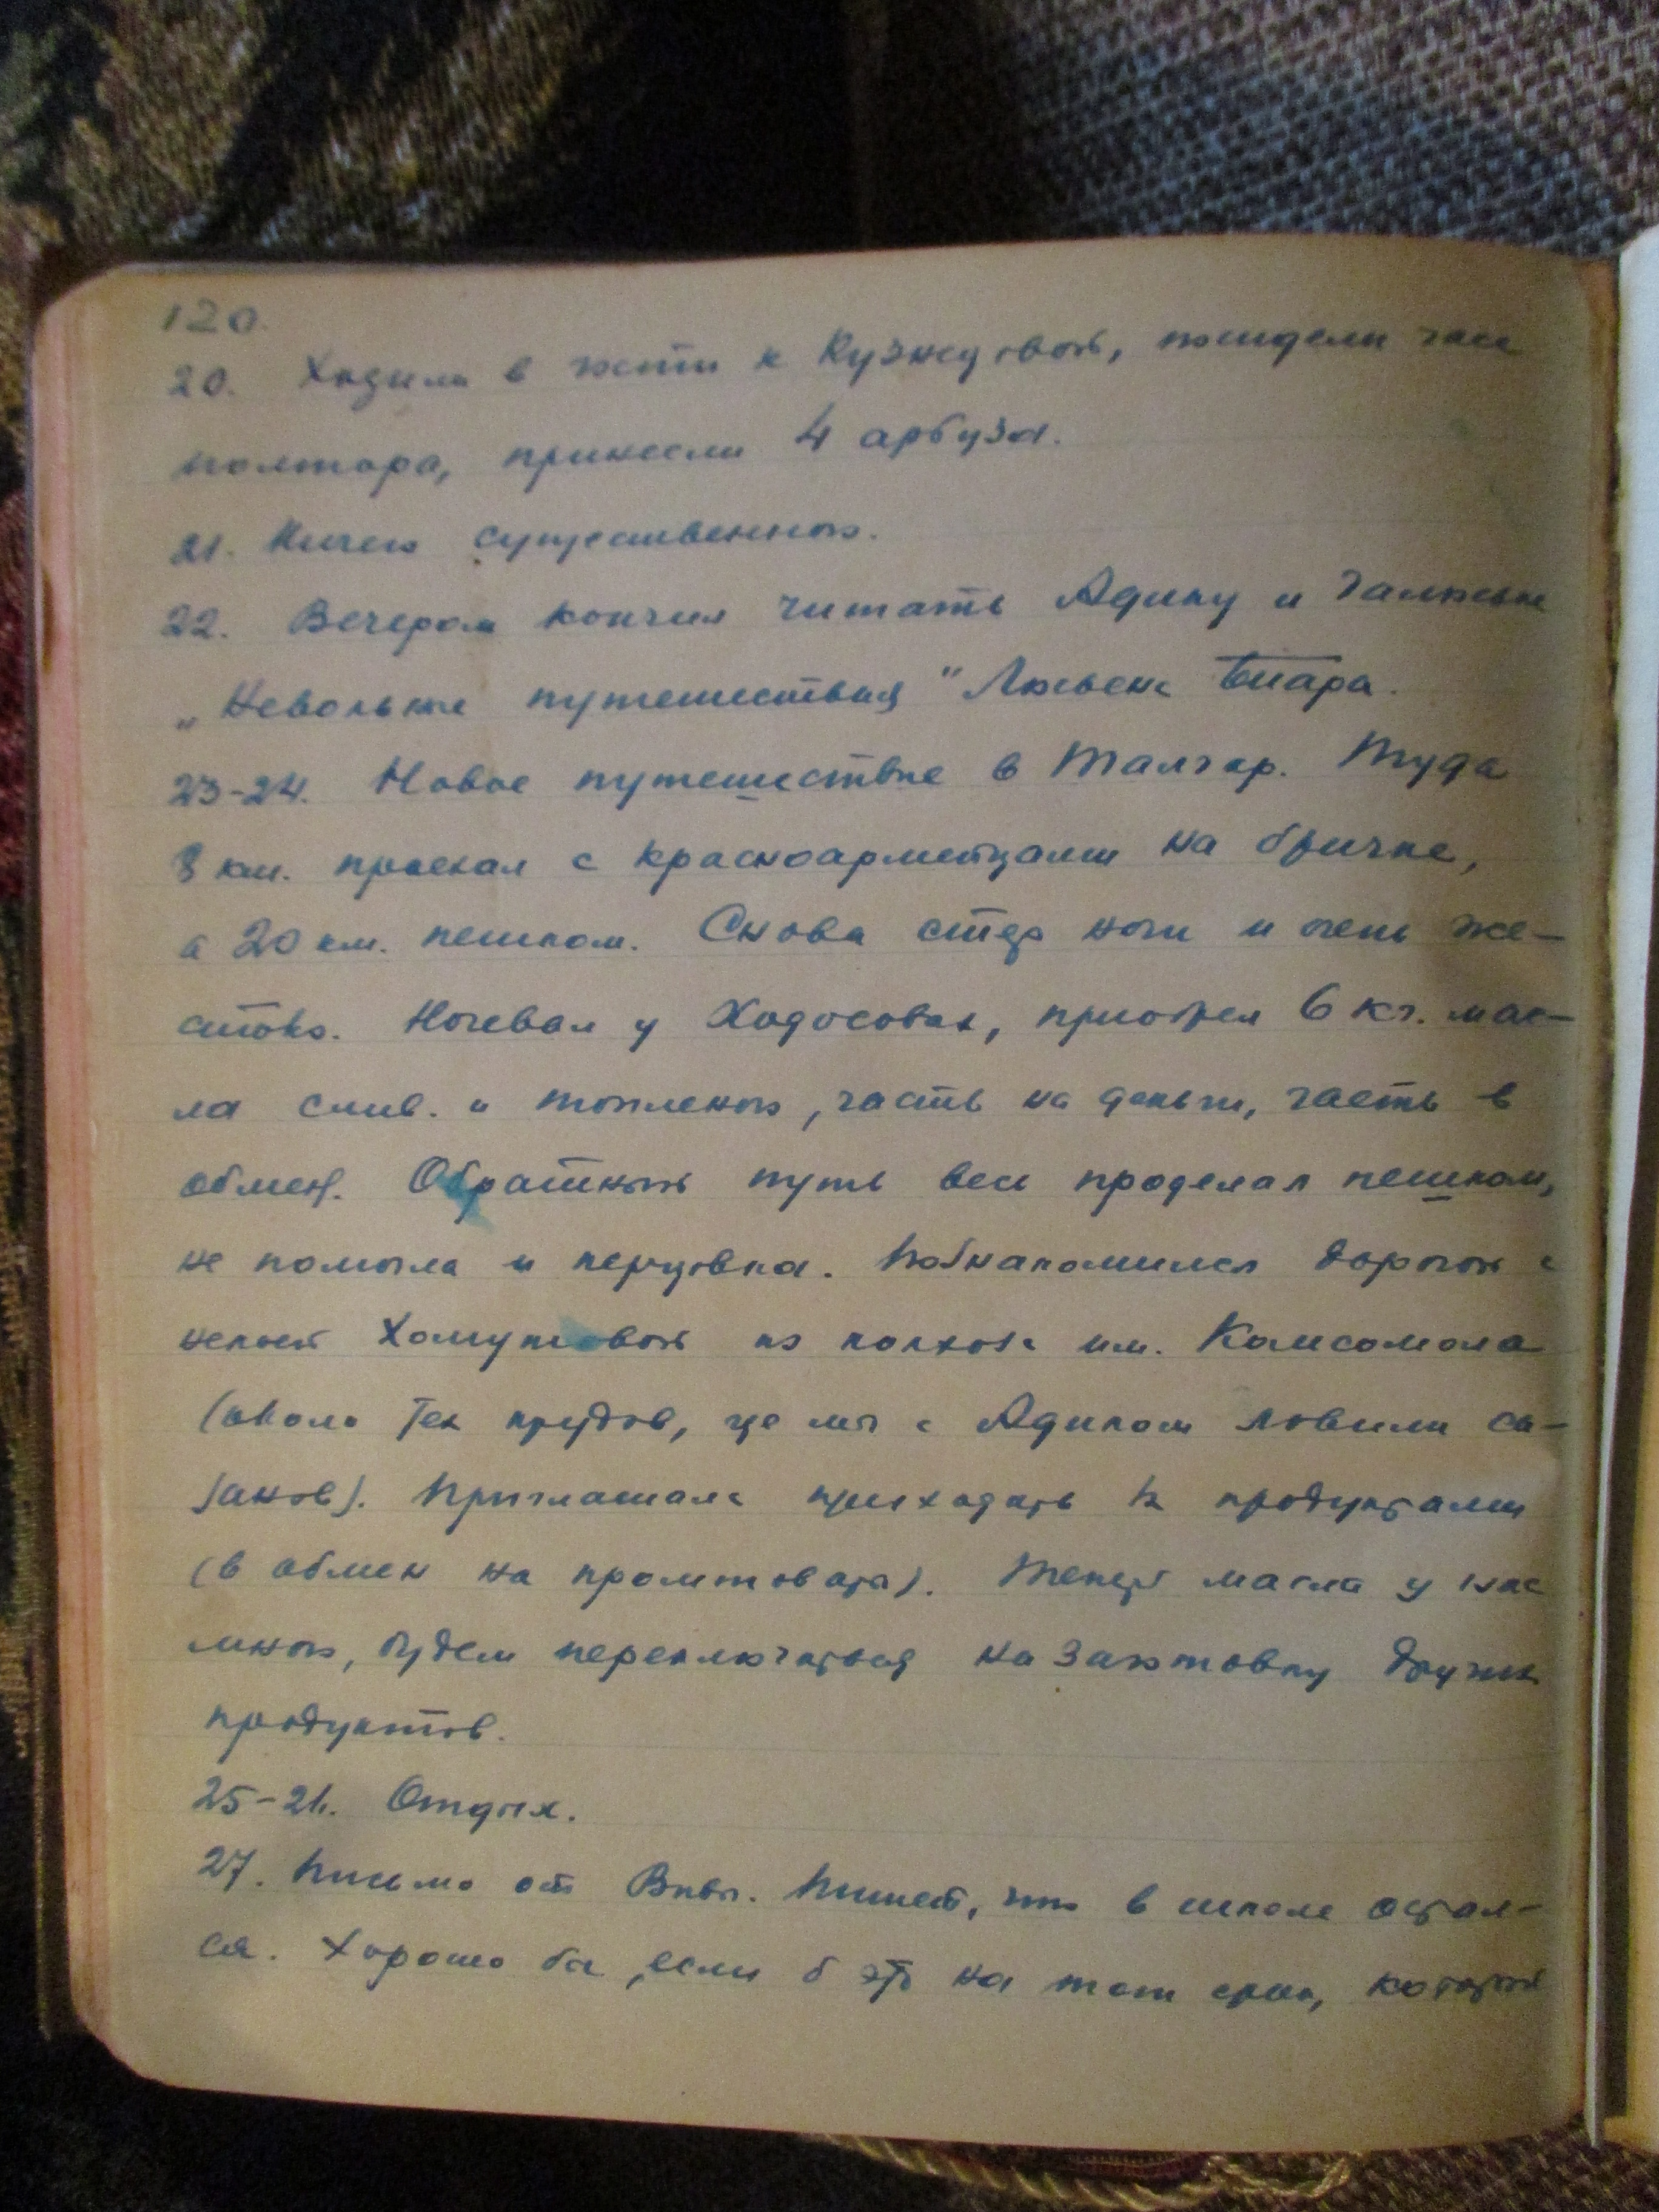 120.
20. Ходили в гости к Кузнецовой, посидели часа
полтора, принесли 4 арбуза.
21. Ничего существенного.
22. Вечером кончил читать Адику и Галочке
„Невольные путешествия" Люсьена Биара.
23-24. Новое путешествие в Талгар. Туда
8 км. проехал с красноармейцами на бричке,
а 20 км. пешком. Снова стер ноги и очень же-
стоко. Ночевал у Ходосовых, приобрел 6 кг. мас-
ла слив. и топленого, часть на деньги, часть в
обмен. Обратный путь весь проделал пешком,
не помогла и перцовка. Познакомился дорогой с
некоей Хомутовой из колхоза им. Комсомола
(около тех прудов, где мы с Адиком ловили са-
занов). Приглашала приходить за продуктами
(в обмен на промтовары). Теперь масла у нас
много, будем переключаться на заготовку других
продуктов.
25-26. Отдых.
27. Письмо от Вивы. Пишет, что в школе остал-
ся. Хорошо бы, если б это на тот срок, который